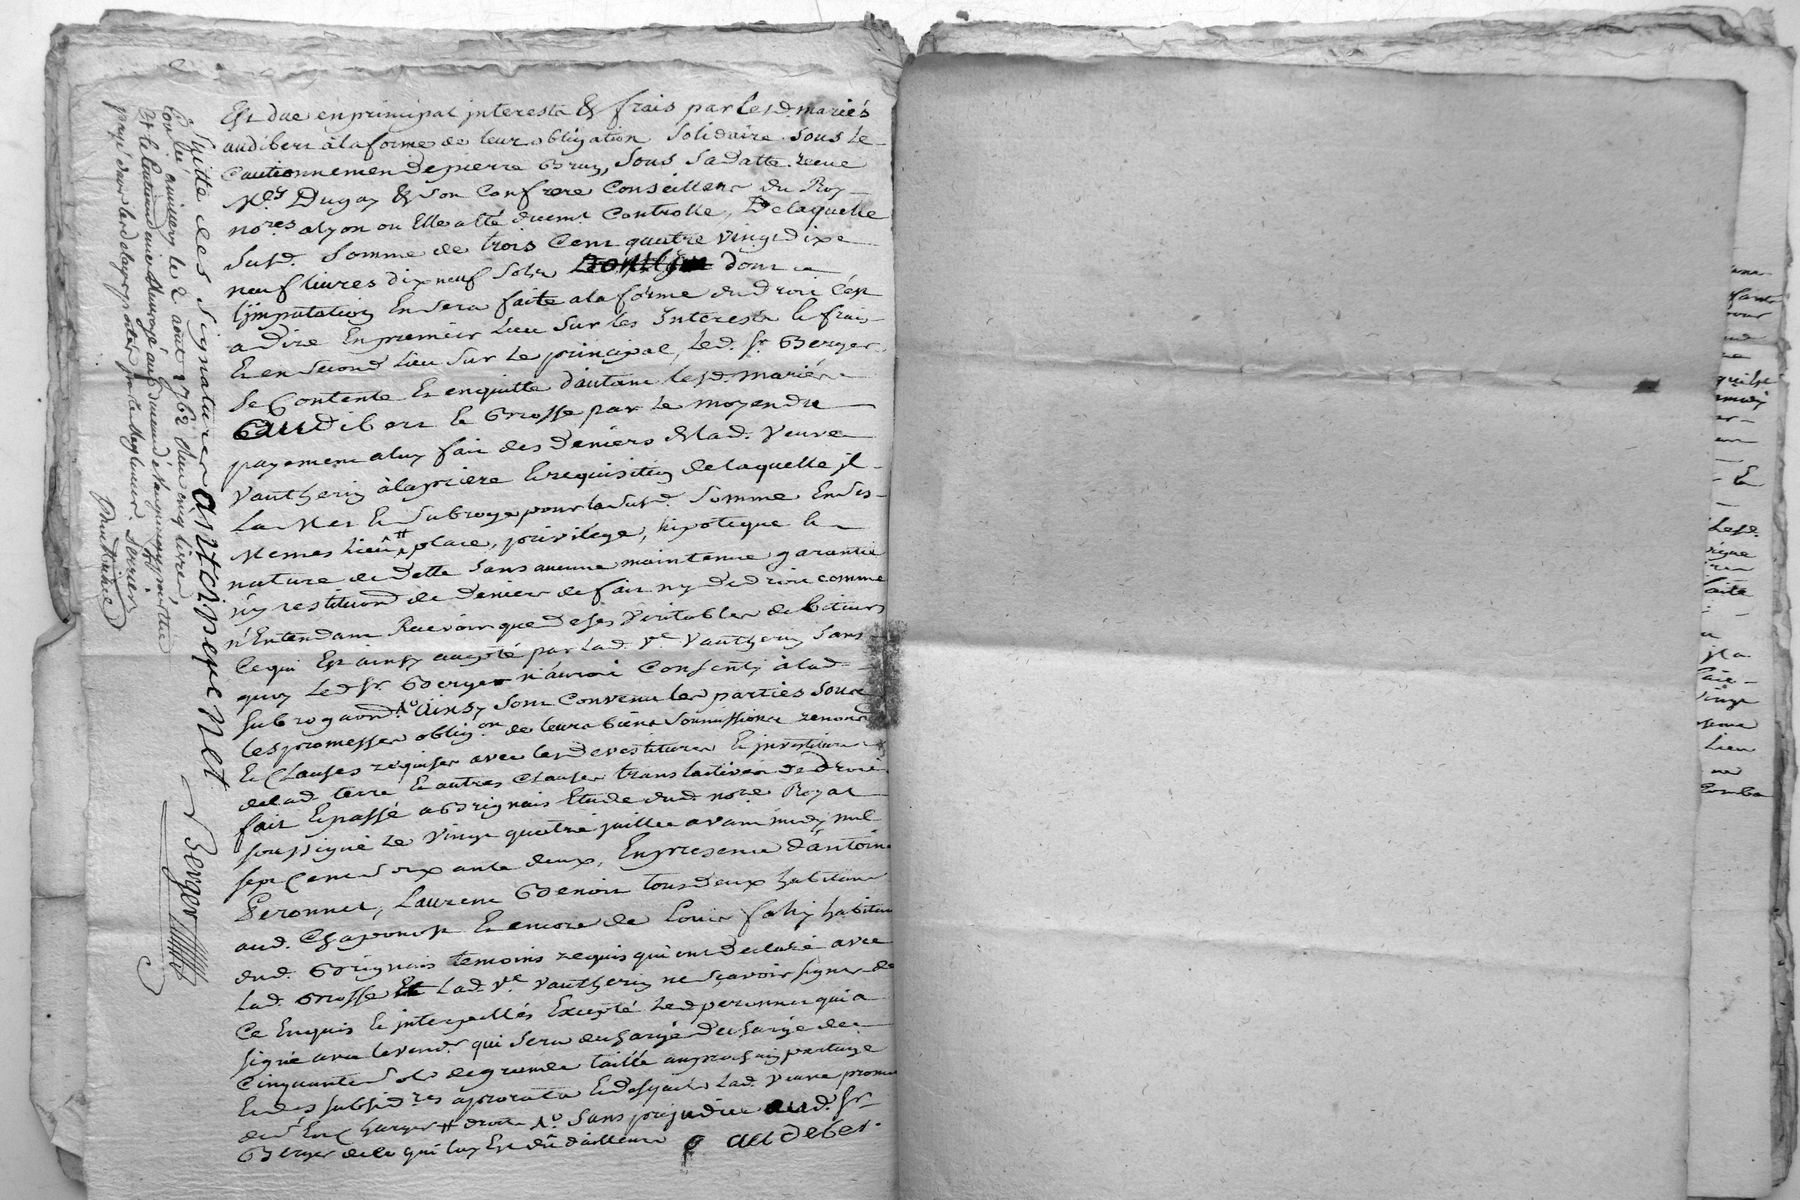 Est due en principal interests & frais par lesd. mariés
audibert à la forme de leur obligation solidaire sous le
Cautionnement de pierre Brun, sous sa datte receue
Mes Dugay & son Confrere Conseillers du Roy
nores alyon ou Elle a eté duemt Controlle, Delaquelle
susd. somme de trois Cent quatre vingt dixe
neuf livres dixneuf sols dont
l'jmputation En sera faite a la forme du Droit C'est
a dire En premier Lieu sur les Interests & frais
Et en second Lieu sur le principal, led. sr. Berger
se Contente Et en quitte d'autant lesd. mariés
audibert & Brosse par le moyen du
payement a luy fait des Deniers de lad. veuve
Vautherin à la priere & requisition de laquelle jl
La Met & subroge pour la susd. somme En ses
Memes Lieu # place, privilege, hipoteque &
nature de Dette sans aucune maintenue garantie
n'y restitution de Deniers de fait n'y De droit comme
n'Entendant Recevoir que de ses veritables debiteurs
Ce qui Est ainsy accepté par lad. Ve. Vautherin sans
quoy Led sr. Berger n'auroit Consenty à lad.
subrogaon. Ainsy sont Convenu les parties sous
les promesses obligon. de leurs biens soumissions renonc
Et Clauses requises avec les devestitures & jnvestitures
de lad. terre Et autres Clauses translatives de Droit
fait & passé a Brignais Etude dud. nore. Royal
soussigné Le vingt quatre juillet avant midy mil
sept Cent soixante deux, En presence d'antoine
Peronnet, Laurent Benoit tous deux habitans
aud. Chaponost Et encore de Louis fahy habitan
dud. Brignais temoins requis qui ont Declaré avec
lad. Brosse Et lad. Ve. Vautherin ne sçavoir signer de
Ce Enquis & interpellés Excepté Led peronnet qui a
signé avec le vendr. qui sera decharge de
Cinquante sols de grande taille au prochain partage
Et des subsidres aprorata Et desquels lad. veuve promet
# droits sans prejudice aud. sr.
Berger de ce qui luy Est dû d'ailleurs audeber
Suitte des signatures antoi peronet
Berger
Conllé a le 2 aout 1762 Recu cinq livres